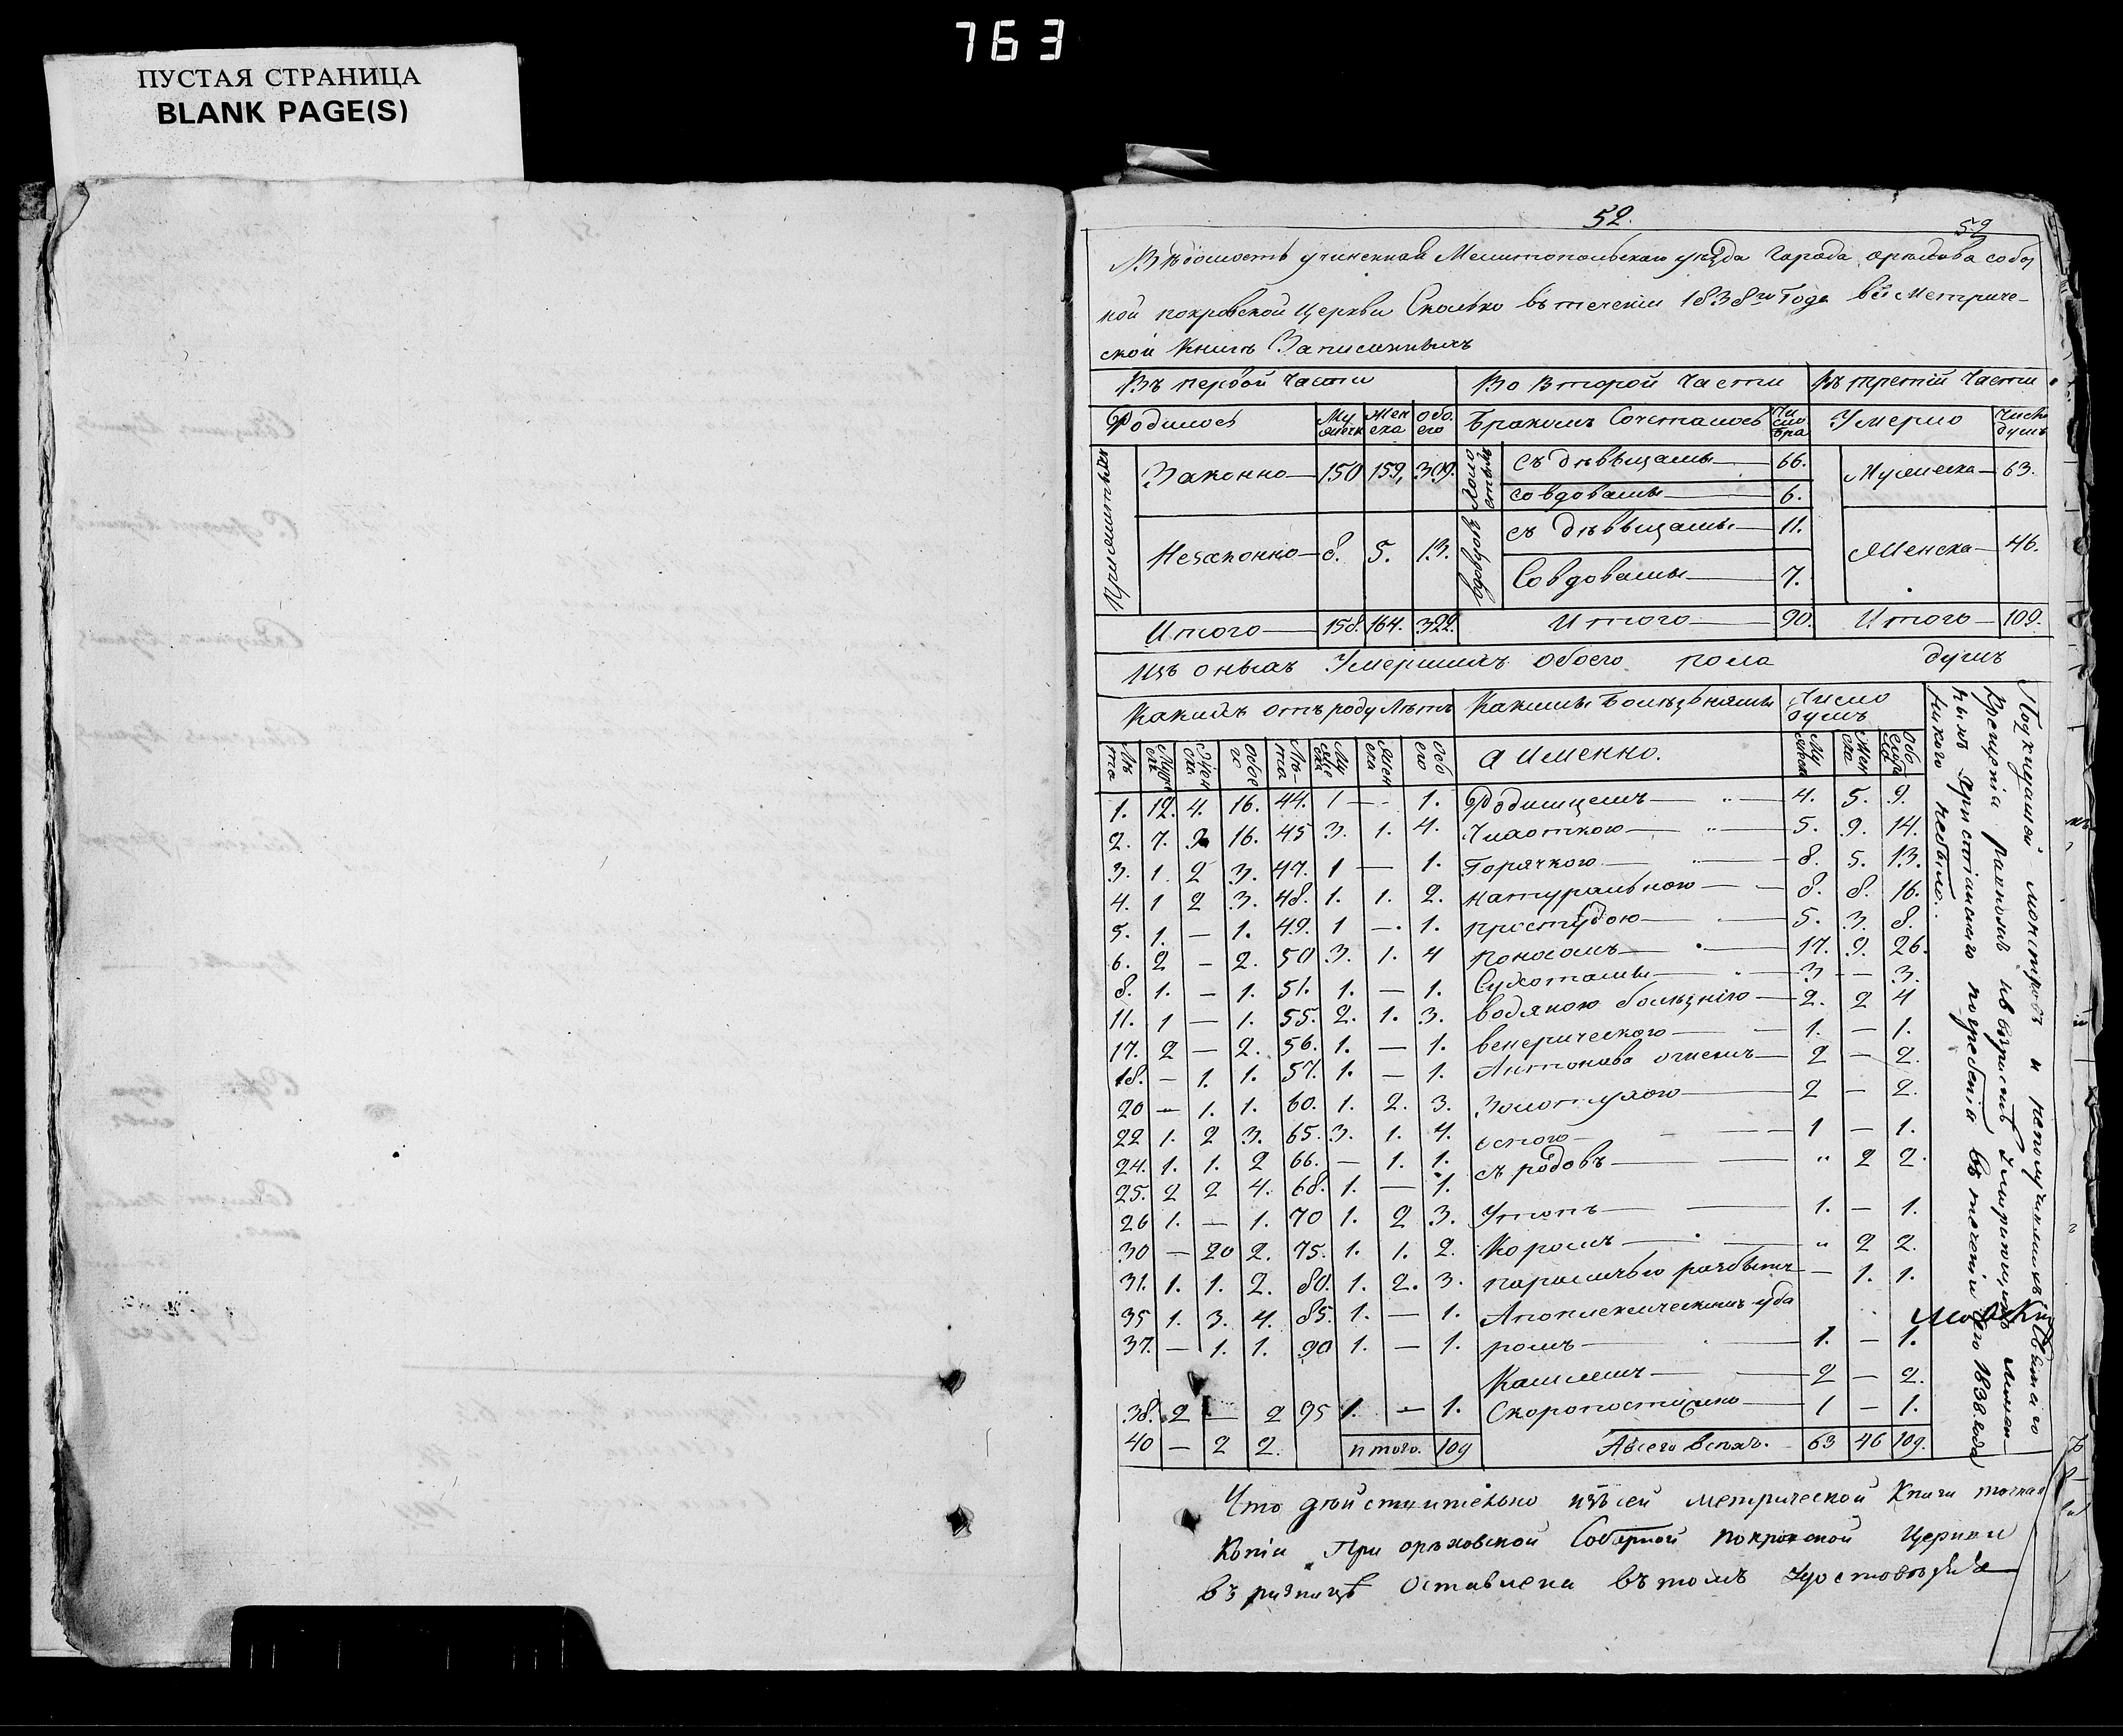 763
ПУСТАЯ СТРАНИЦА
BLANK PAGE(S)
52.
52
Вѣдомость учиненная Мелитопольскаго уѣзда города орѣхова собор
ной покровской Церкви Сколько въ теченіи 1838го Года въ Метриче-
ской Книгѣ Записанныхъ
Въ первой Части Во второй Части Въ третій Части
Родилось Му жеск Жен ска обо. его Бракомъ Сочеталось Чи сло бра Умерло Число душъ
Законно 150 159, 309. Холо стыхъ съ дѣвицами 66. Мужеска 63.
со вдовами 6.
Незаконно 8. 5. 13. вдовцовъ съ дѣвицами 11. Женска 46.
Со вдовами 7.
Итого 158. 164. 322. Итого 90. Итого 109.
Изъ оныхъ Умершихъ обоего пола душъ
Какихъ отъ роду Лѣтъ Какими Болѣзнями Число душъ
а именно.
1. 12. 4. 16. 44. 1 — 1. Родимцемъ 4. 5. 9.
2. 7. 9 16. 45 3. 1. 4. Чахоткою 5. 9. 14.
3. 1. 2 3. 47. 1 — 1. Горячкою 8. 5. 13.
4. 1 2 3. 48. 1. 1. 2. натуральною 8. 8. 16.
5. 1. — 1. 49. 1 — 1. простудою 5. 3. 8.
6. 2 — 2. 50 3. 1. 4 поносомъ 17. 9. 26.
8. 1. — 1. 51. 1. — 1. Сухотами 3 — 3.
11. 1 — 1. 55. 2. 1. 3. водяною болѣзнію 2. 2 4
17. 2 — 2. 56. 1. — 1. венерическою 1. — 1.
18. — 1. 1. 57. 1. — 1. Антонова огнемъ 2 — 2.
20 — 1. 1. 60. 1. 2. 3. Золотухою 2 — 2.
22 1. 2 3. 65. 3. 1. 4. оспою 1 — 1.
24. 1. 1. 2 66. — 1. 1. съ родовъ „ 2 2.
25. 2 2 4. 68. 1. — 1.
26 1. — 1. 70 1. 2 3. Утопъ 1. — 1.
30 — 20 2. 75. 1. 1. 2. Коромъ „ 2 2.
31. 1. 1. 2. 80. 1. 2. 3. параличью разбытъ — 1. 1.
35 1. 3. 4. 85. 1. — 1. Апоплексическимъ уда
37. — 1. 1. 90 1. — 1. ромъ 1. — 1.
Кашлемъ 2 — 2.
38. 2 — 2 95 1. — 1. Скоропостижно 1 — 1.
40 — 2 2. итого. 109 А всего всѣхъ. 63 46 109.
и неполучившихъ Святаго
Крещенія
Христіанскаго погребенія въ теченіи сего 1838. года
никого небыло.
Что дѣйствительно изъ сей метрической Книги точная
Копія При орѣховской Соборной покровской Церкви
въ ризницѣ Оставлена въ томъ